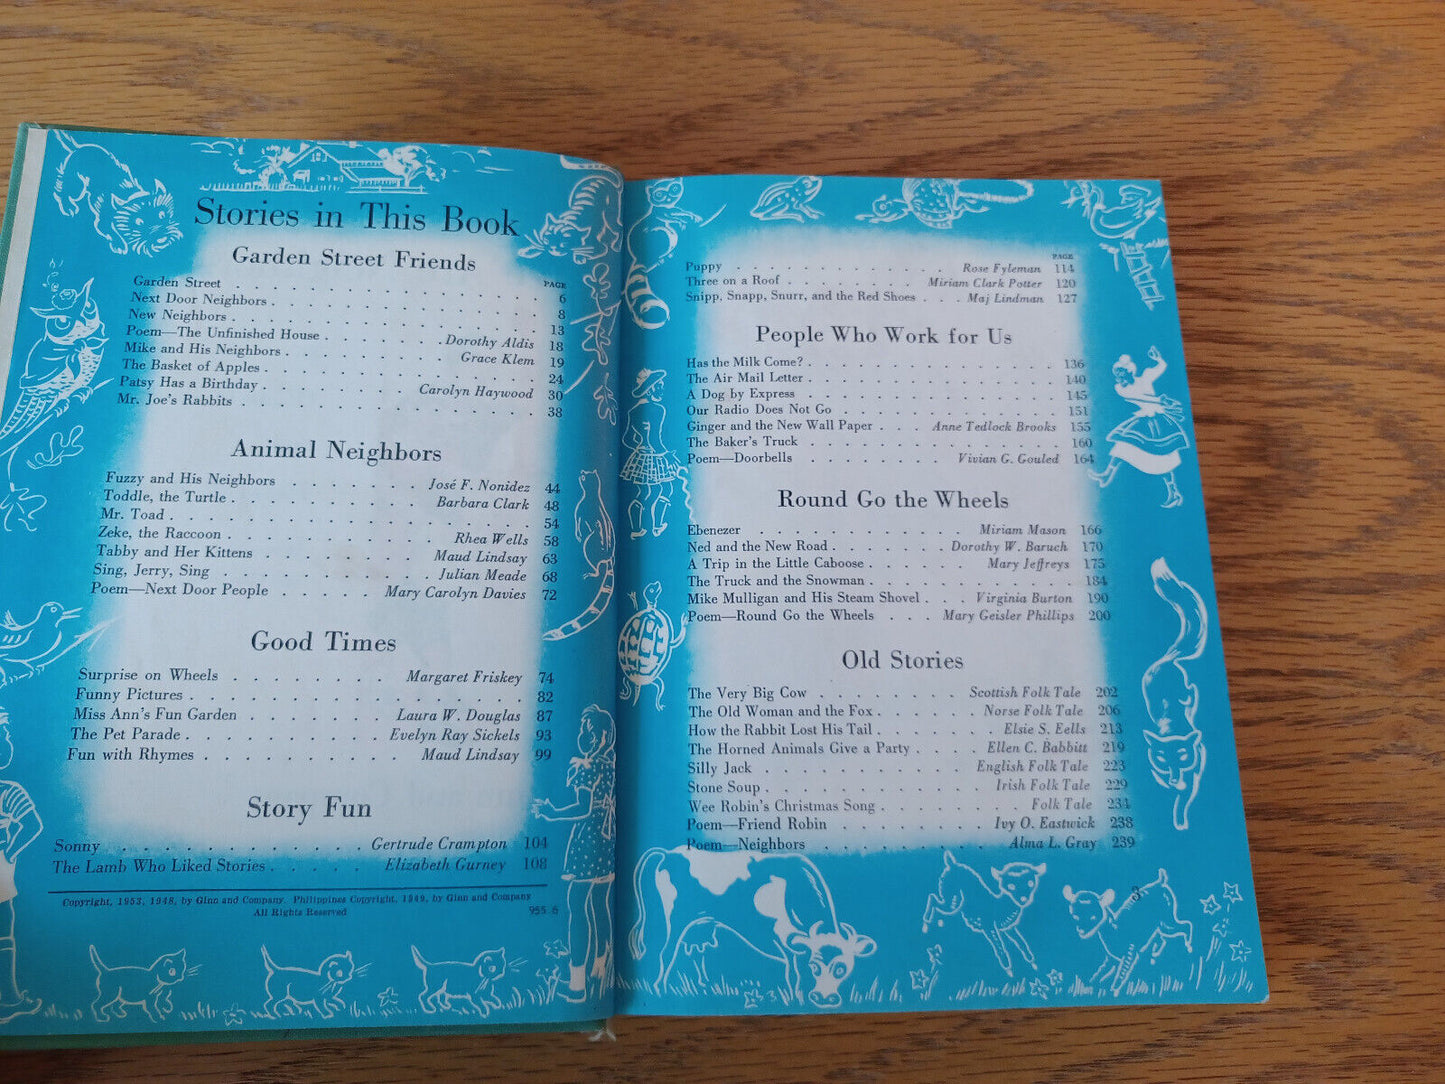 Stories in This Book
Garden Street Friends
PAGE
Garden Street . . . . . . . . . . . . . . . . 6
Next Door Neighbors . . . . . . . . . . . . . . . 8
New Neighbors . . . . . . . . . . . . . . . . 13
Poem—The Unfinished House . . . . . . Dorothy Aldis 18
Mike and His Neighbors . . . . . . . . Grace Klem 19
The Basket of Apples . . . . . . . . . . . . . . 24
Patsy Has a Birthday . . . . . . . Carolyn Haywood 30
Mr. Joe's Rabbits . . . . . . . . . . . . . . . 38
Animal Neighbors
Fuzzy and His Neighbors . . . . . . . José F. Nonidez 44
Toddle, the Turtle . . . . . . . . . Barbara Clark 48
Mr. Toad . . . . . . . . . . . . . . . . . 54
Zeke, the Raccoon . . . . . . . . . . Rhea Wells 58
Tabby and Her Kittens . . . . . . . . Maud Lindsay 63
Sing, Jerry, Sing . . . . . . . . . . Julian Meade 68
Poem—Next Door People . . . . . . Mary Carolyn Davies 72
Good Times
Surprise on Wheels . . . . . . . . Margaret Friskey 74
Funny Pictures . . . . . . . . . . . . . . . 82
Miss Ann's Fun Garden . . . . . . . Laura W. Douglas 87
The Pet Parade . . . . . . . . . Evelyn Ray Sickels 93
Fun with Rhymes . . . . . . . . . . Maud Lindsay 99
Story Fun
Sonny . . . . . . . . . . . Gertrude Crampton 104
The Lamb Who Liked Stories . . . . . Elizabeth Gurney 108
Copyright, 1953, 1948, by Ginn and Company. Philippines Copyright, 1949, by Ginn and Company
All Rights Reserved 955.6
PAGE
Puppy . . . . . . . . . . . . . Rose Fyleman 114
Three on a Roof . . . . . . . . . Miriam Clark Potter 120
Snipp, Snapp, Snurr, and the Red Shoes . . . Maj Lindman 127
People Who Work for Us
Has the Milk Come? . . . . . . . . . . . . . . 136
The Air Mail Letter . . . . . . . . . . . . . . 140
A Dog by Express . . . . . . . . . . . . . . 145
Our Radio Does Not Go . . . . . . . . . . . . 151
Ginger and the New Wall Paper . . . Anne Tedlock Brooks 155
The Baker's Truck . . . . . . . . . . . . . . 160
Poem—Doorbells . . . . . . . . Vivian G. Gouled 164
Round Go the Wheels
Ebenezer . . . . . . . . . . . . Miriam Mason 166
Ned and the New Road . . . . . . . Dorothy W. Baruch 170
A Trip in the Little Caboose . . . . . . . Mary Jeffreys 175
The Truck and the Snowman . . . . . . . . . . . 184
Mike Mulligan and His Steam Shovel . . . Virginia Burton 190
Poem—Round Go the Wheels . . . Mary Geisler Phillips 200
Old Stories
The Very Big Cow . . . . . . . . Scottish Folk Tale 202
The Old Woman and the Fox . . . . . . Norse Folk Tale 206
How the Rabbit Lost His Tail . . . . . . . Elsie S. Eells 213
The Horned Animals Give a Party . . . . Ellen C. Babbitt 219
Silly Jack . . . . . . . . . . . English Folk Tale 223
Stone Soup . . . . . . . . . . . . Irish Folk Tale 229
Wee Robin's Christmas Song . . . . . . . . Folk Tale 234
Poem—Friend Robin . . . . . . . . Ivy O. Eastwick 238
Poem—Neighbors . . . . . . . . . . Alma L. Gray 239
3